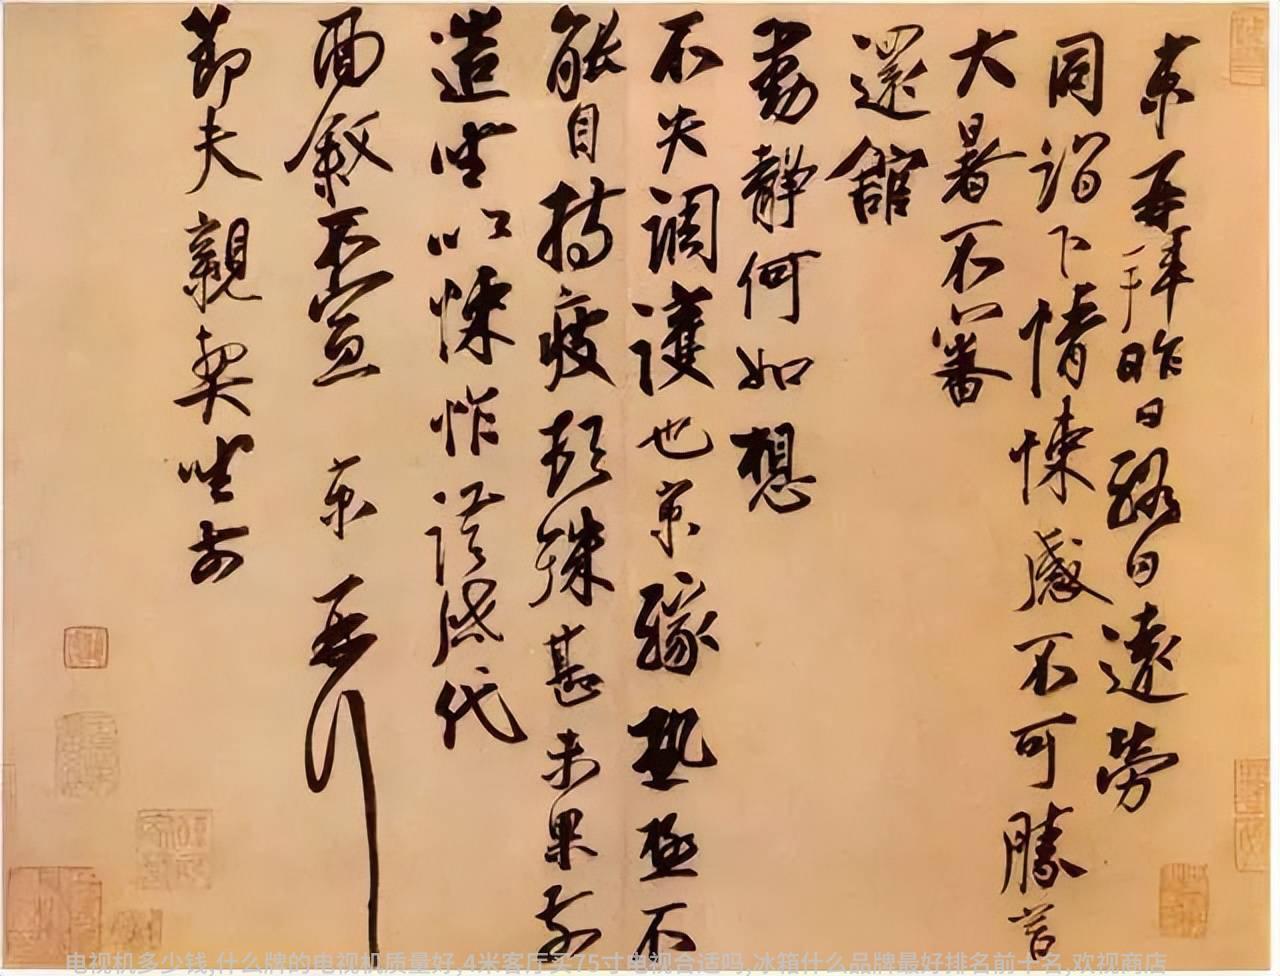 京再拜昨日日遠勞
同詣下情悚感不可勝言
大暑不審
還館
動靜何如想
不失調護也京緣熱極不
能自持疲頓殊甚未果前
造坐以悚怍謹啟代
面叙不宣 京再拜
節夫親契坐前
电视机多少钱,什么牌的电视机质量好,4米客厅买75寸电视合适吗,冰箱什么品牌最好排名前十名,欢视商店